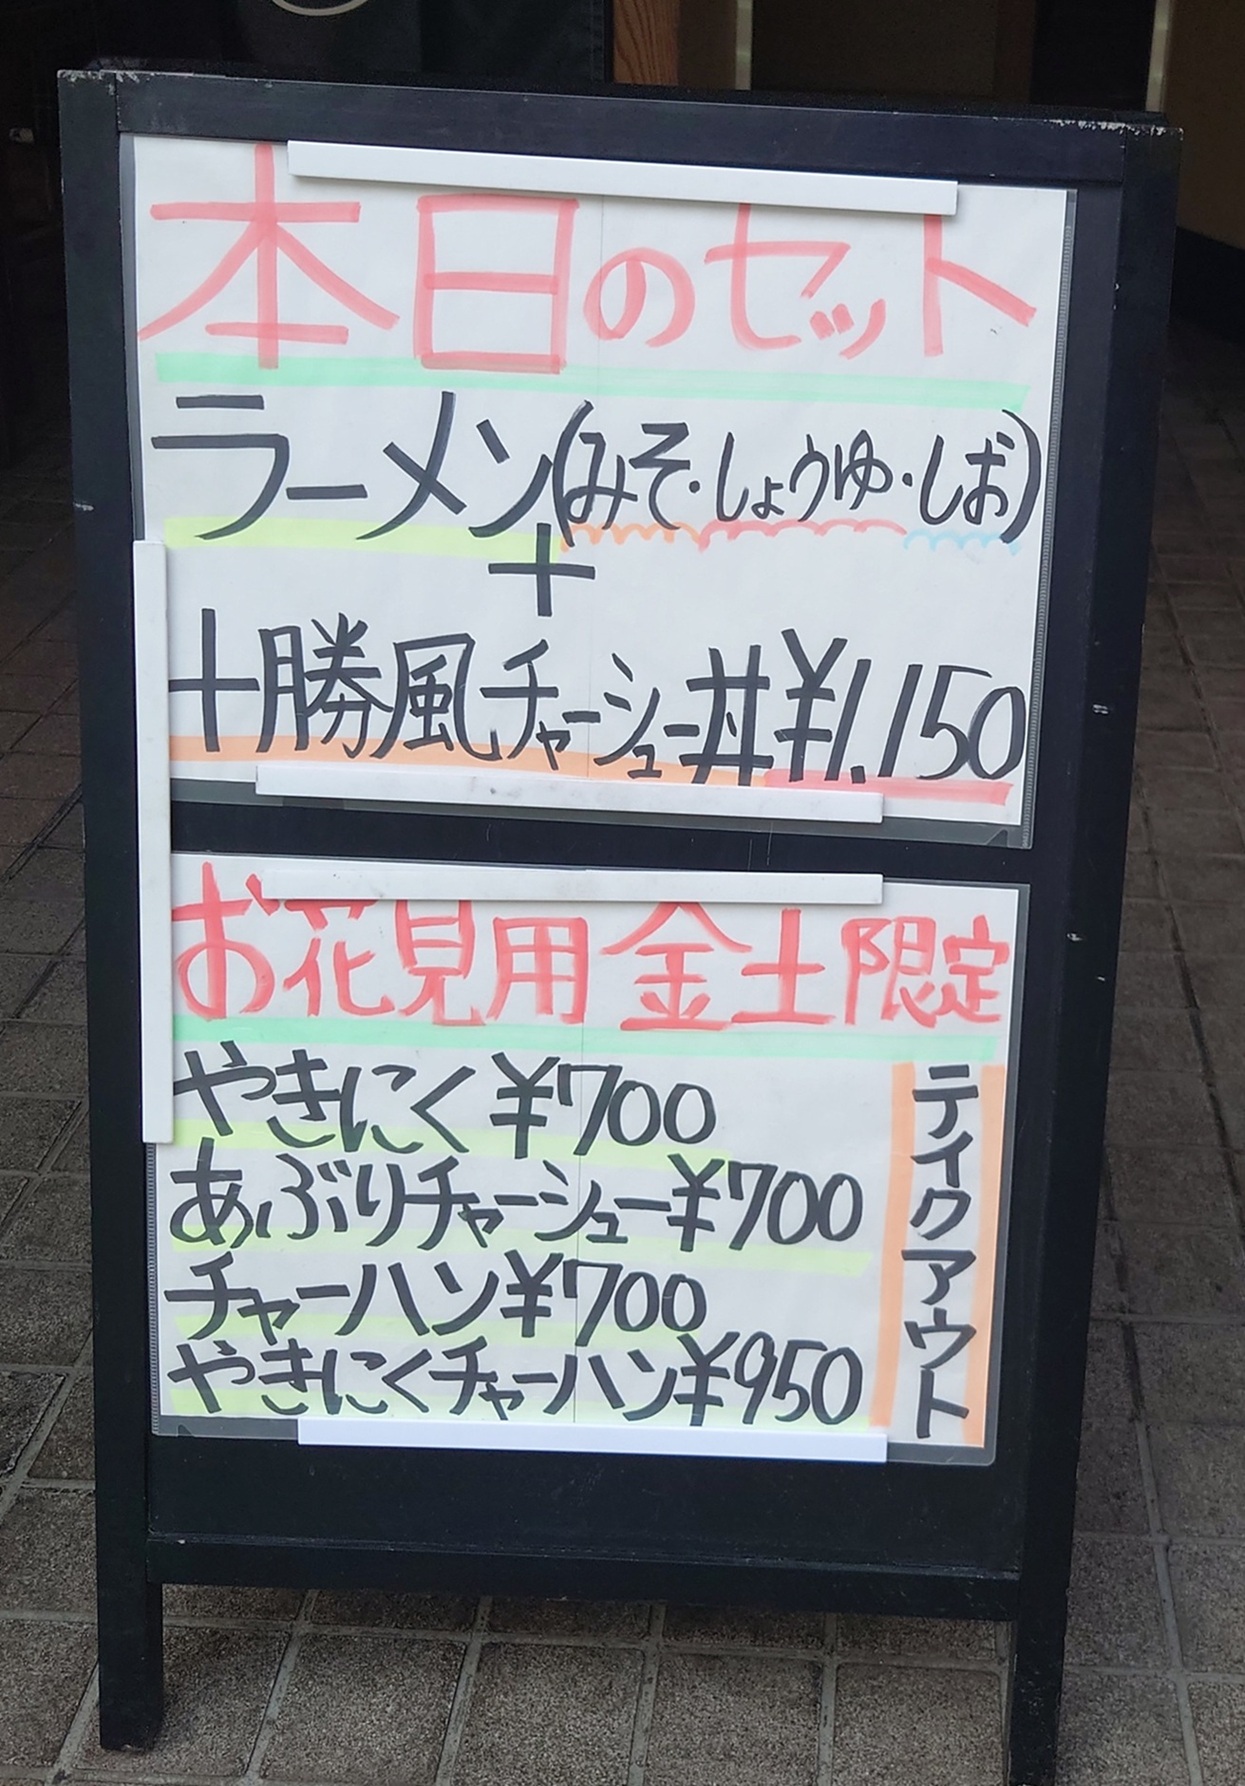 本日のセット
ラーメン(みそ・しょうゆ・しお)
+
十勝風チャーシュー丼¥1,150
お花見用 金土限定
やきにく ¥700
あぶりチャーシュー¥700
チャーハン¥700
やきにくチャーハン¥950
テイクアウト